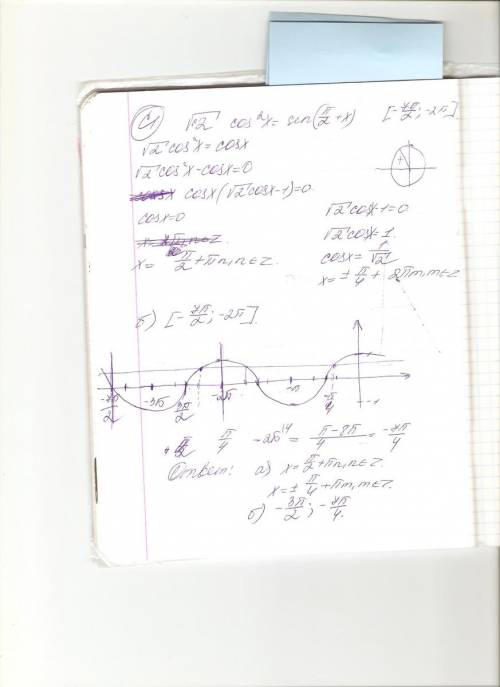 С1 √2 cos²x = sin(π/2 + x) [-7π/2; -2π]
√2 cos²x = cosx
√2 cos²x - cosx = 0
cosx(√2 cosx - 1) = 0
cosx = 0 √2 cosx - 1 = 0
√2 cosx = 1
cosx = 1/√2
x = π/2 + πn, n∈Z. x = ± π/4 + 2πm, m∈Z
б) [-7π/2; -2π].
-7π/2 -3π 3π/2 -2π -π -π/4 -1
π/2 π/4 -2π = π-8π/4 = -7π/4
Ответ: а) x = π/2 + πn, n∈Z.
x = ± π/4 + πm, m∈Z.
б) -3π/2; -7π/4.